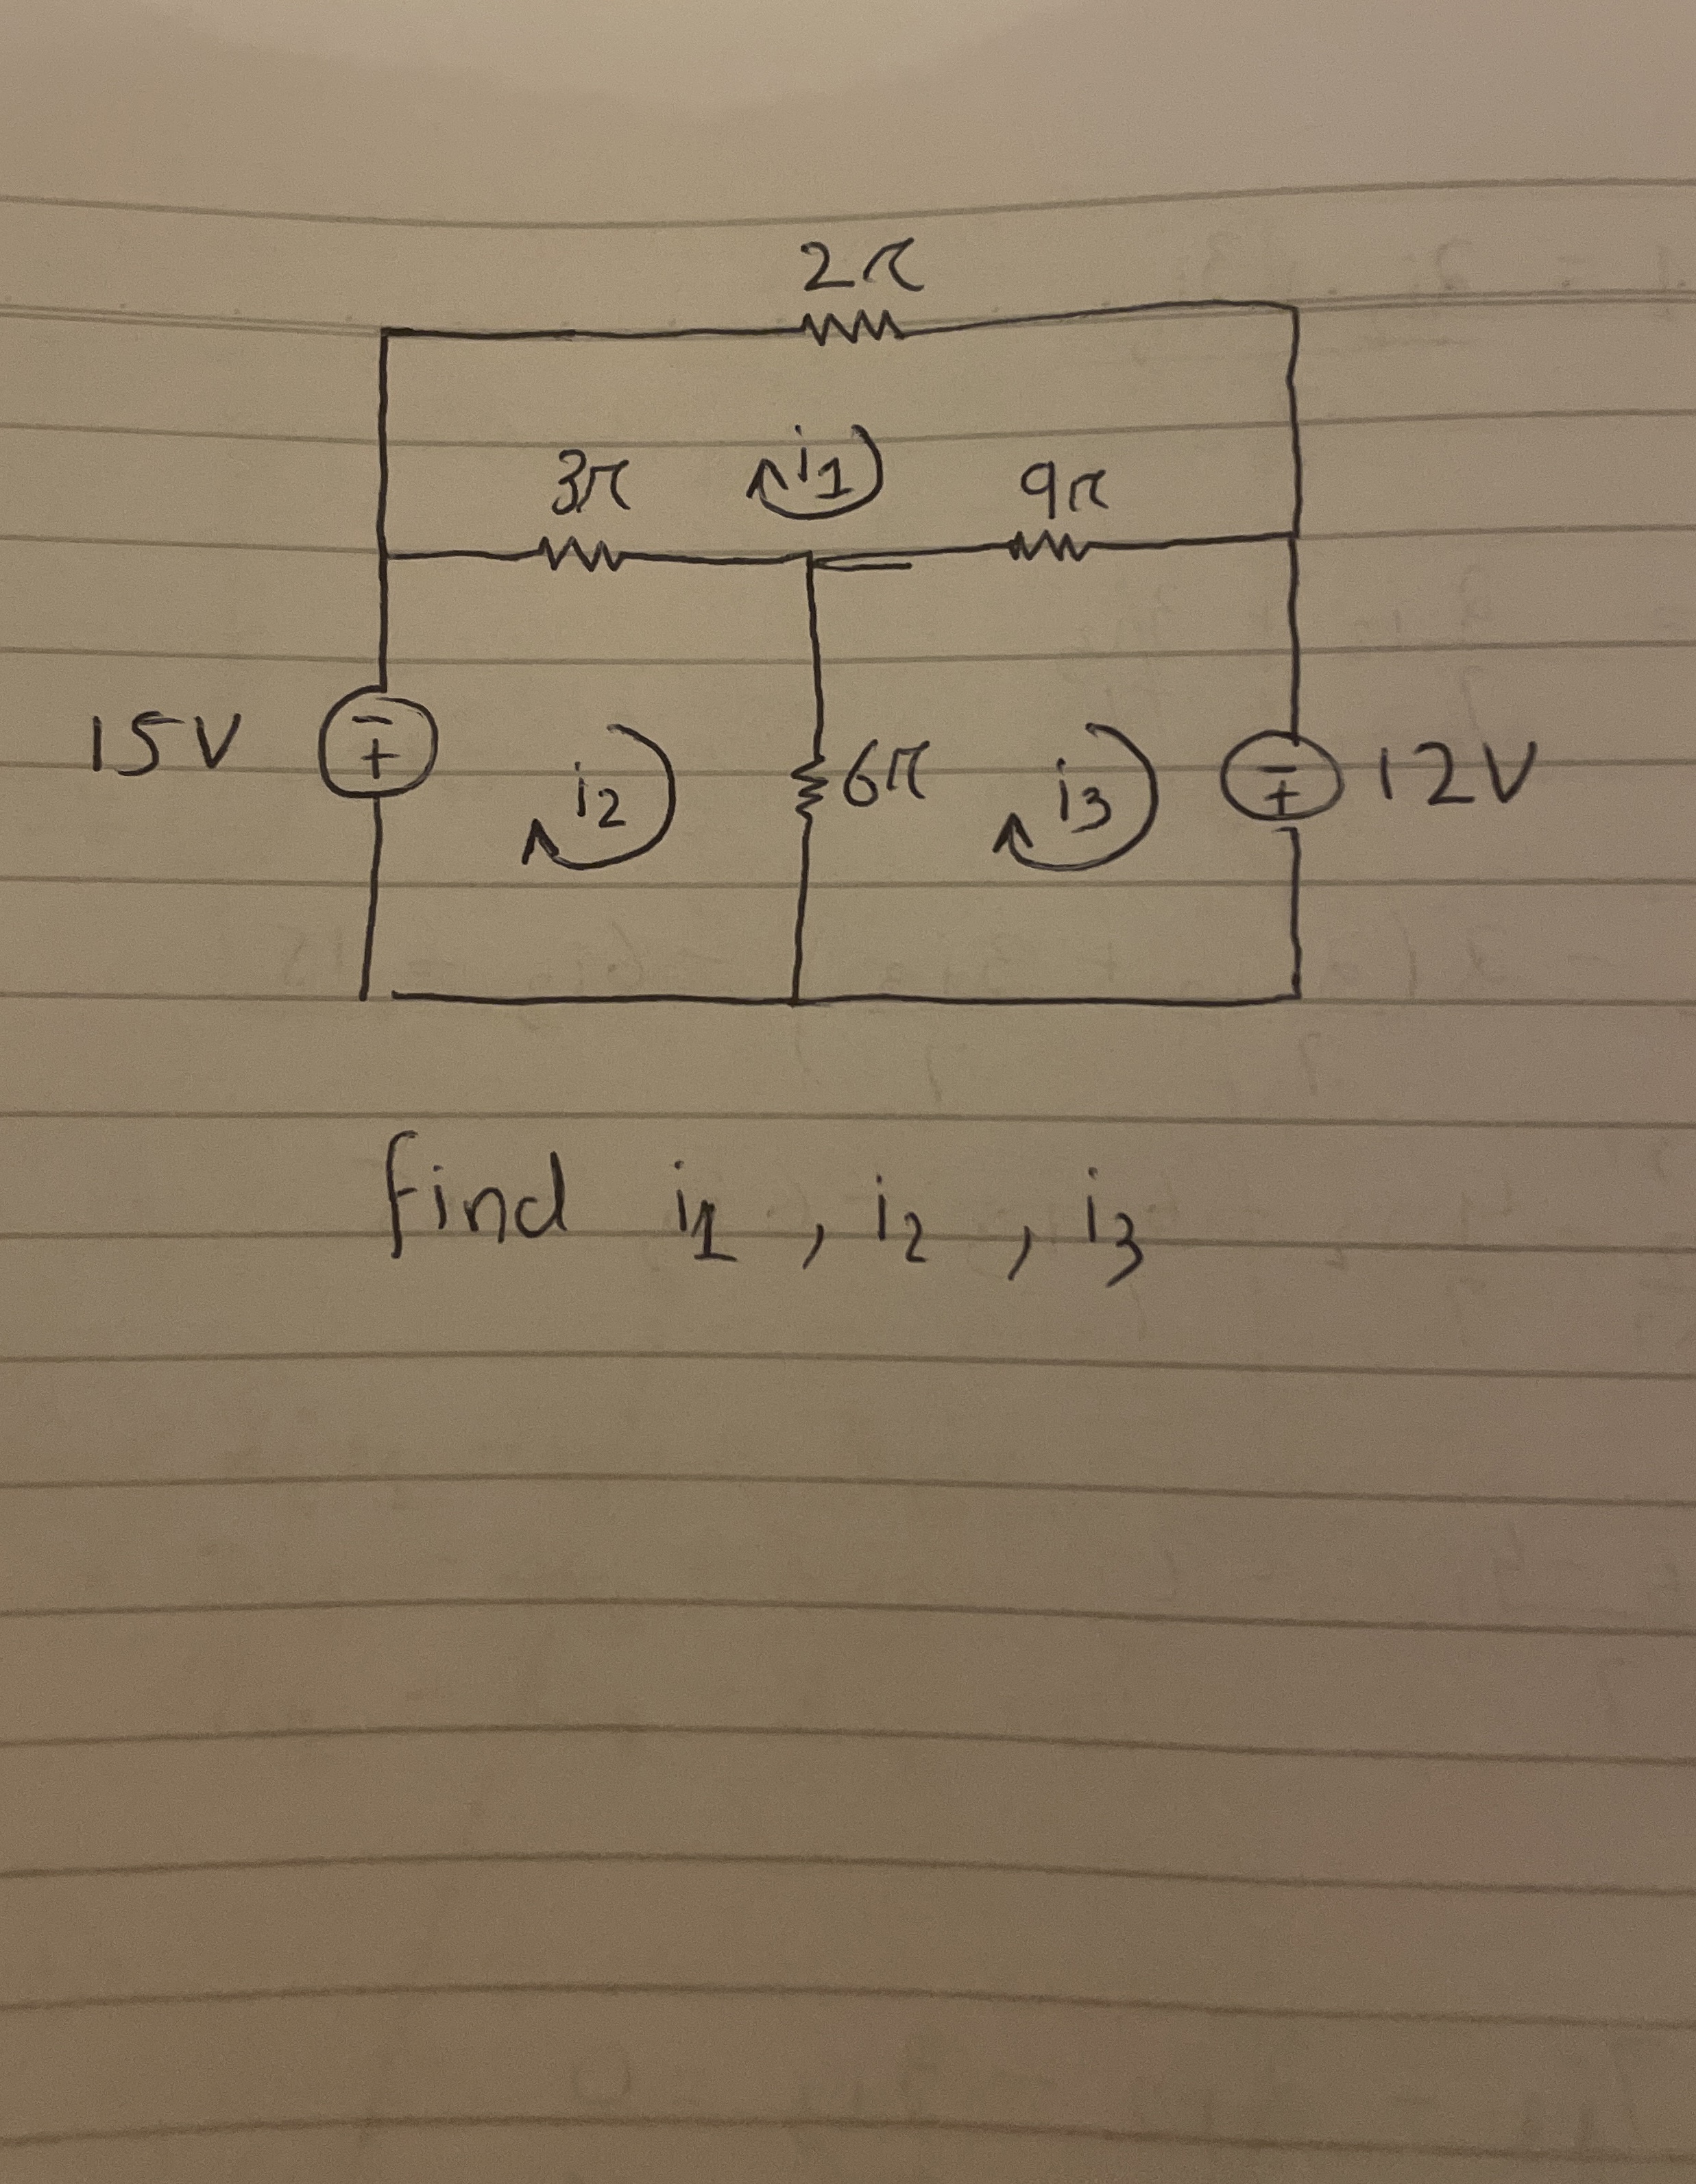 2Ω
3Ω i1 9Ω
15V - + i2 6Ω i3 - + 12V
find i1 , i2 , i3